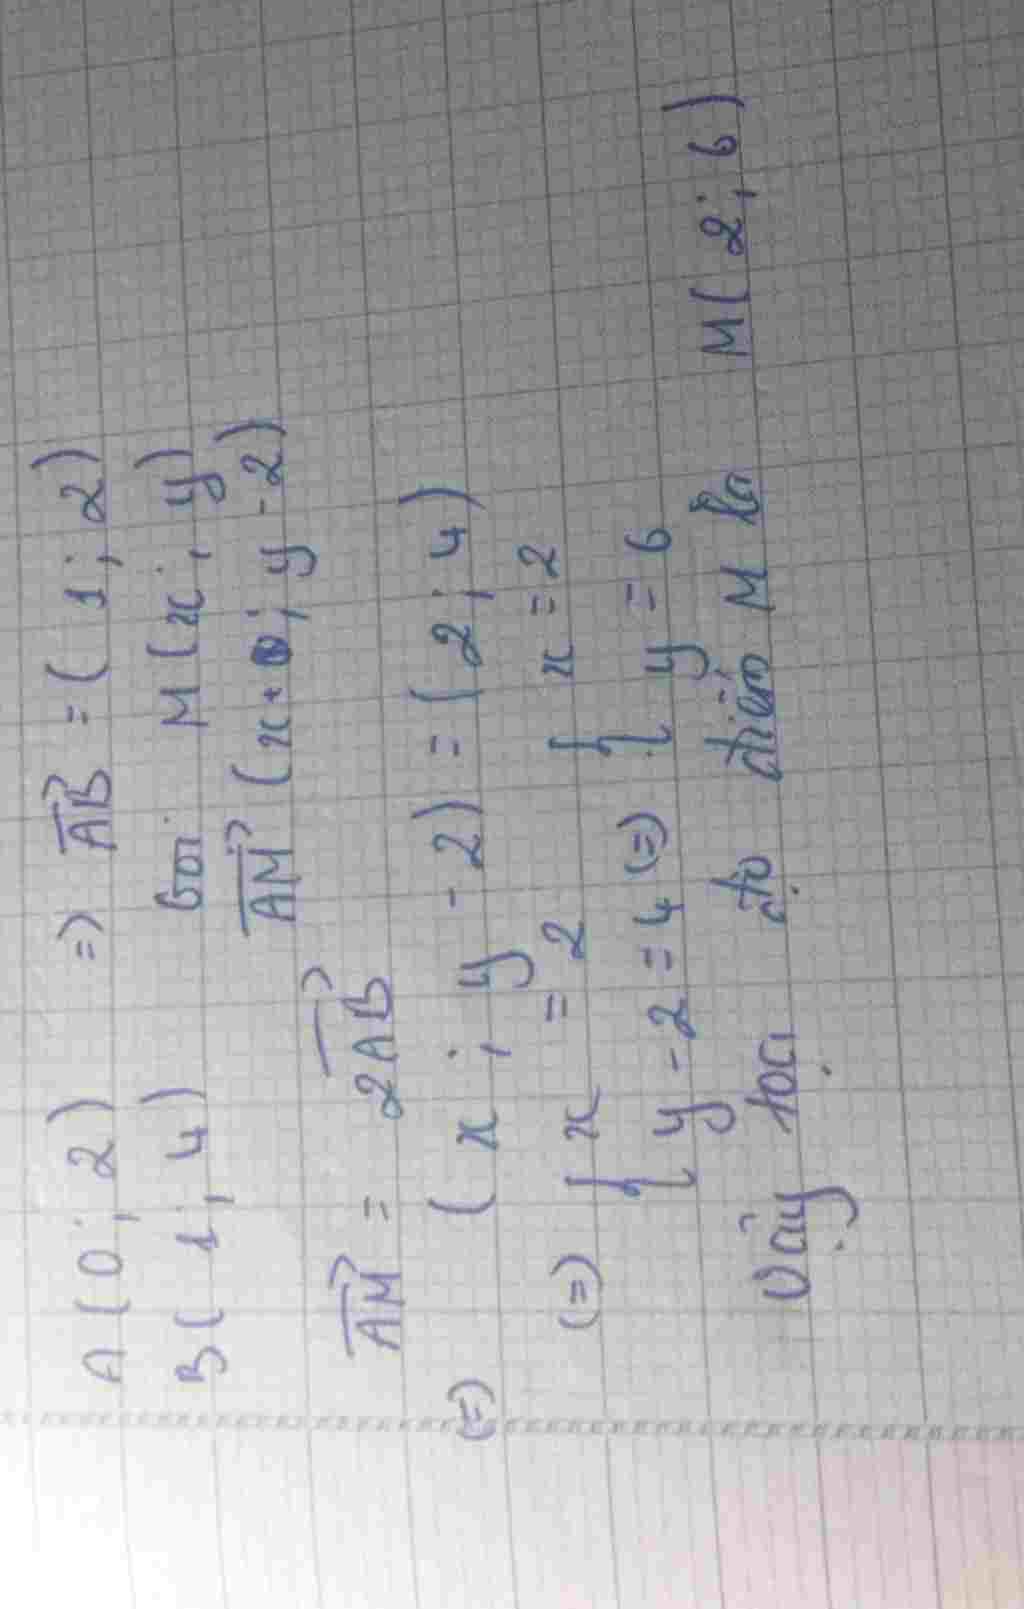 A(0; 2) => AB→ = (1; 2)
B(1; 4) Gọi M(x; y)
AM→ (x + 0; y - 2)
AM→ = 2AB→
(=) (x; y - 2) = (2; 4)
(=) { x = 2 { x = 2
{ y - 2 = 4 (=) { y = 6
Vậy toạ độ điểm M là M(2; 6)